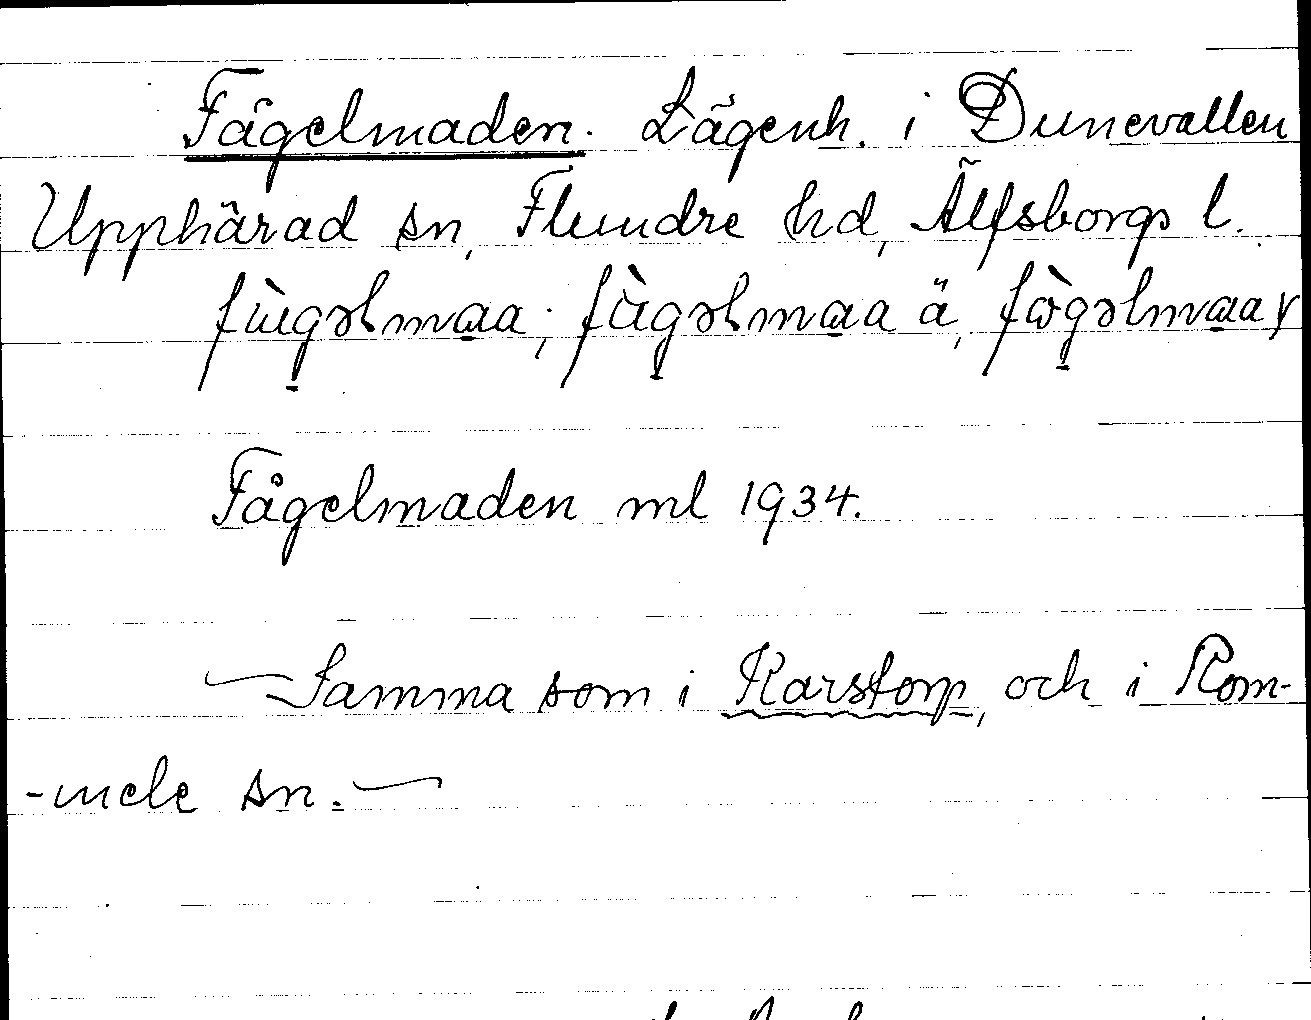 Fågelmaden. Lägenh. i Dunevallen
Upphärad sn, Flundre hd, Älfsborgs l.
fùgəlmaa; fùgəlmaa ä, fògəlmaa y
Fågelmaden ml 1934.
— Samma som i Karstorp, och i Rom-
-mele sn. —